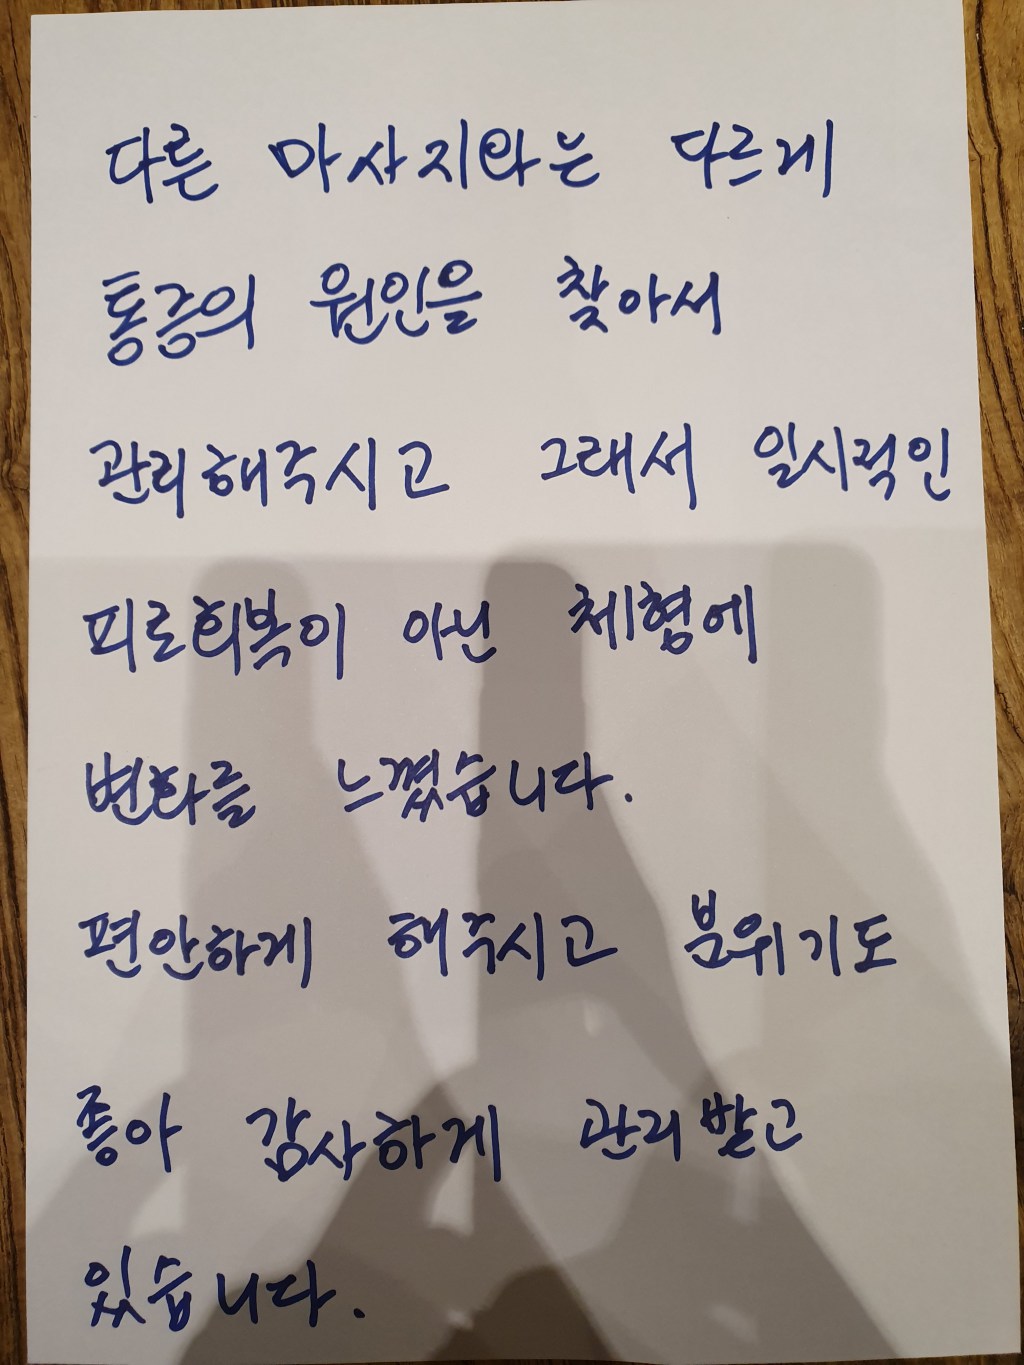 다른 마사지와는 다르게
통증의 원인을 찾아서
관리해주시고 그래서 일시적인
피로회복이 아닌 체형에
변화를 느꼈습니다.
편안하게 해주시고 분위기도
좋아 감사하게 관리받고
있습니다.